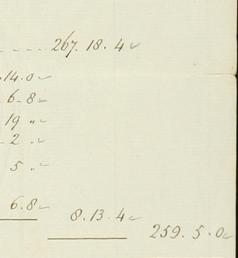 267. 18. 4
.14. 0
6 - 8
19 "
2 "
5 "
6. 8
8. 13. 4
259. 5. 0